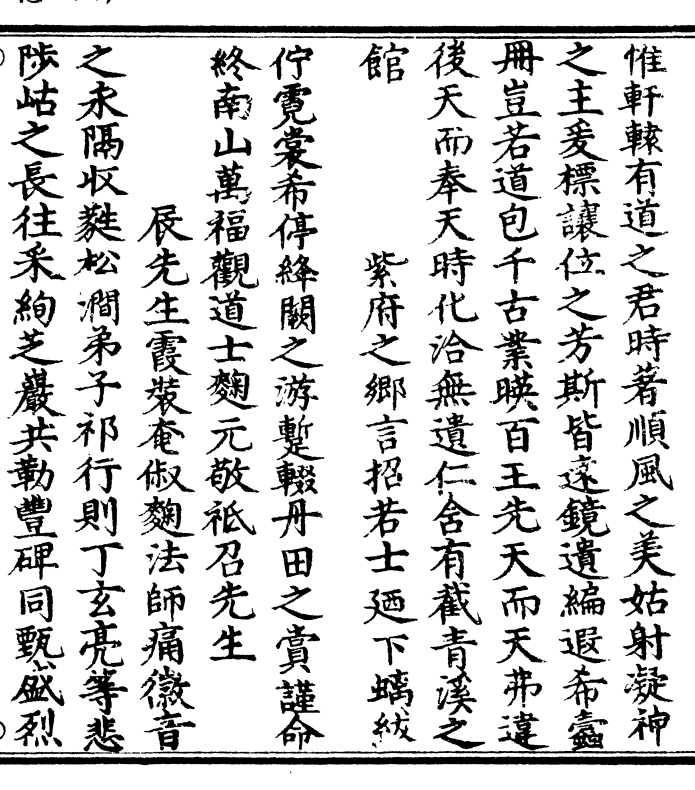 惟軒轅有道之君時著順風之美姑射凝神
之主爰標讓位之芳斯皆遠鏡遺編遐希蠹
冊豈若道包千古業暎百王先天而天弗違
後天而奉天時化洽無遺仁含有截青溪之
館　　　紫府之鄉言招若士廼下螭紱
佇霓裳希停絳闕之游蹔輟丹田之賞謹命
終南山萬福觀道士麴元敬祇召先生
辰先生霞裝奄俶麴法師痛徽音
之永隔收蕤松澗弟子祁行則丁玄亮等悲
陟岵之長往采絢芝巖共勒豐碑同甄盛烈